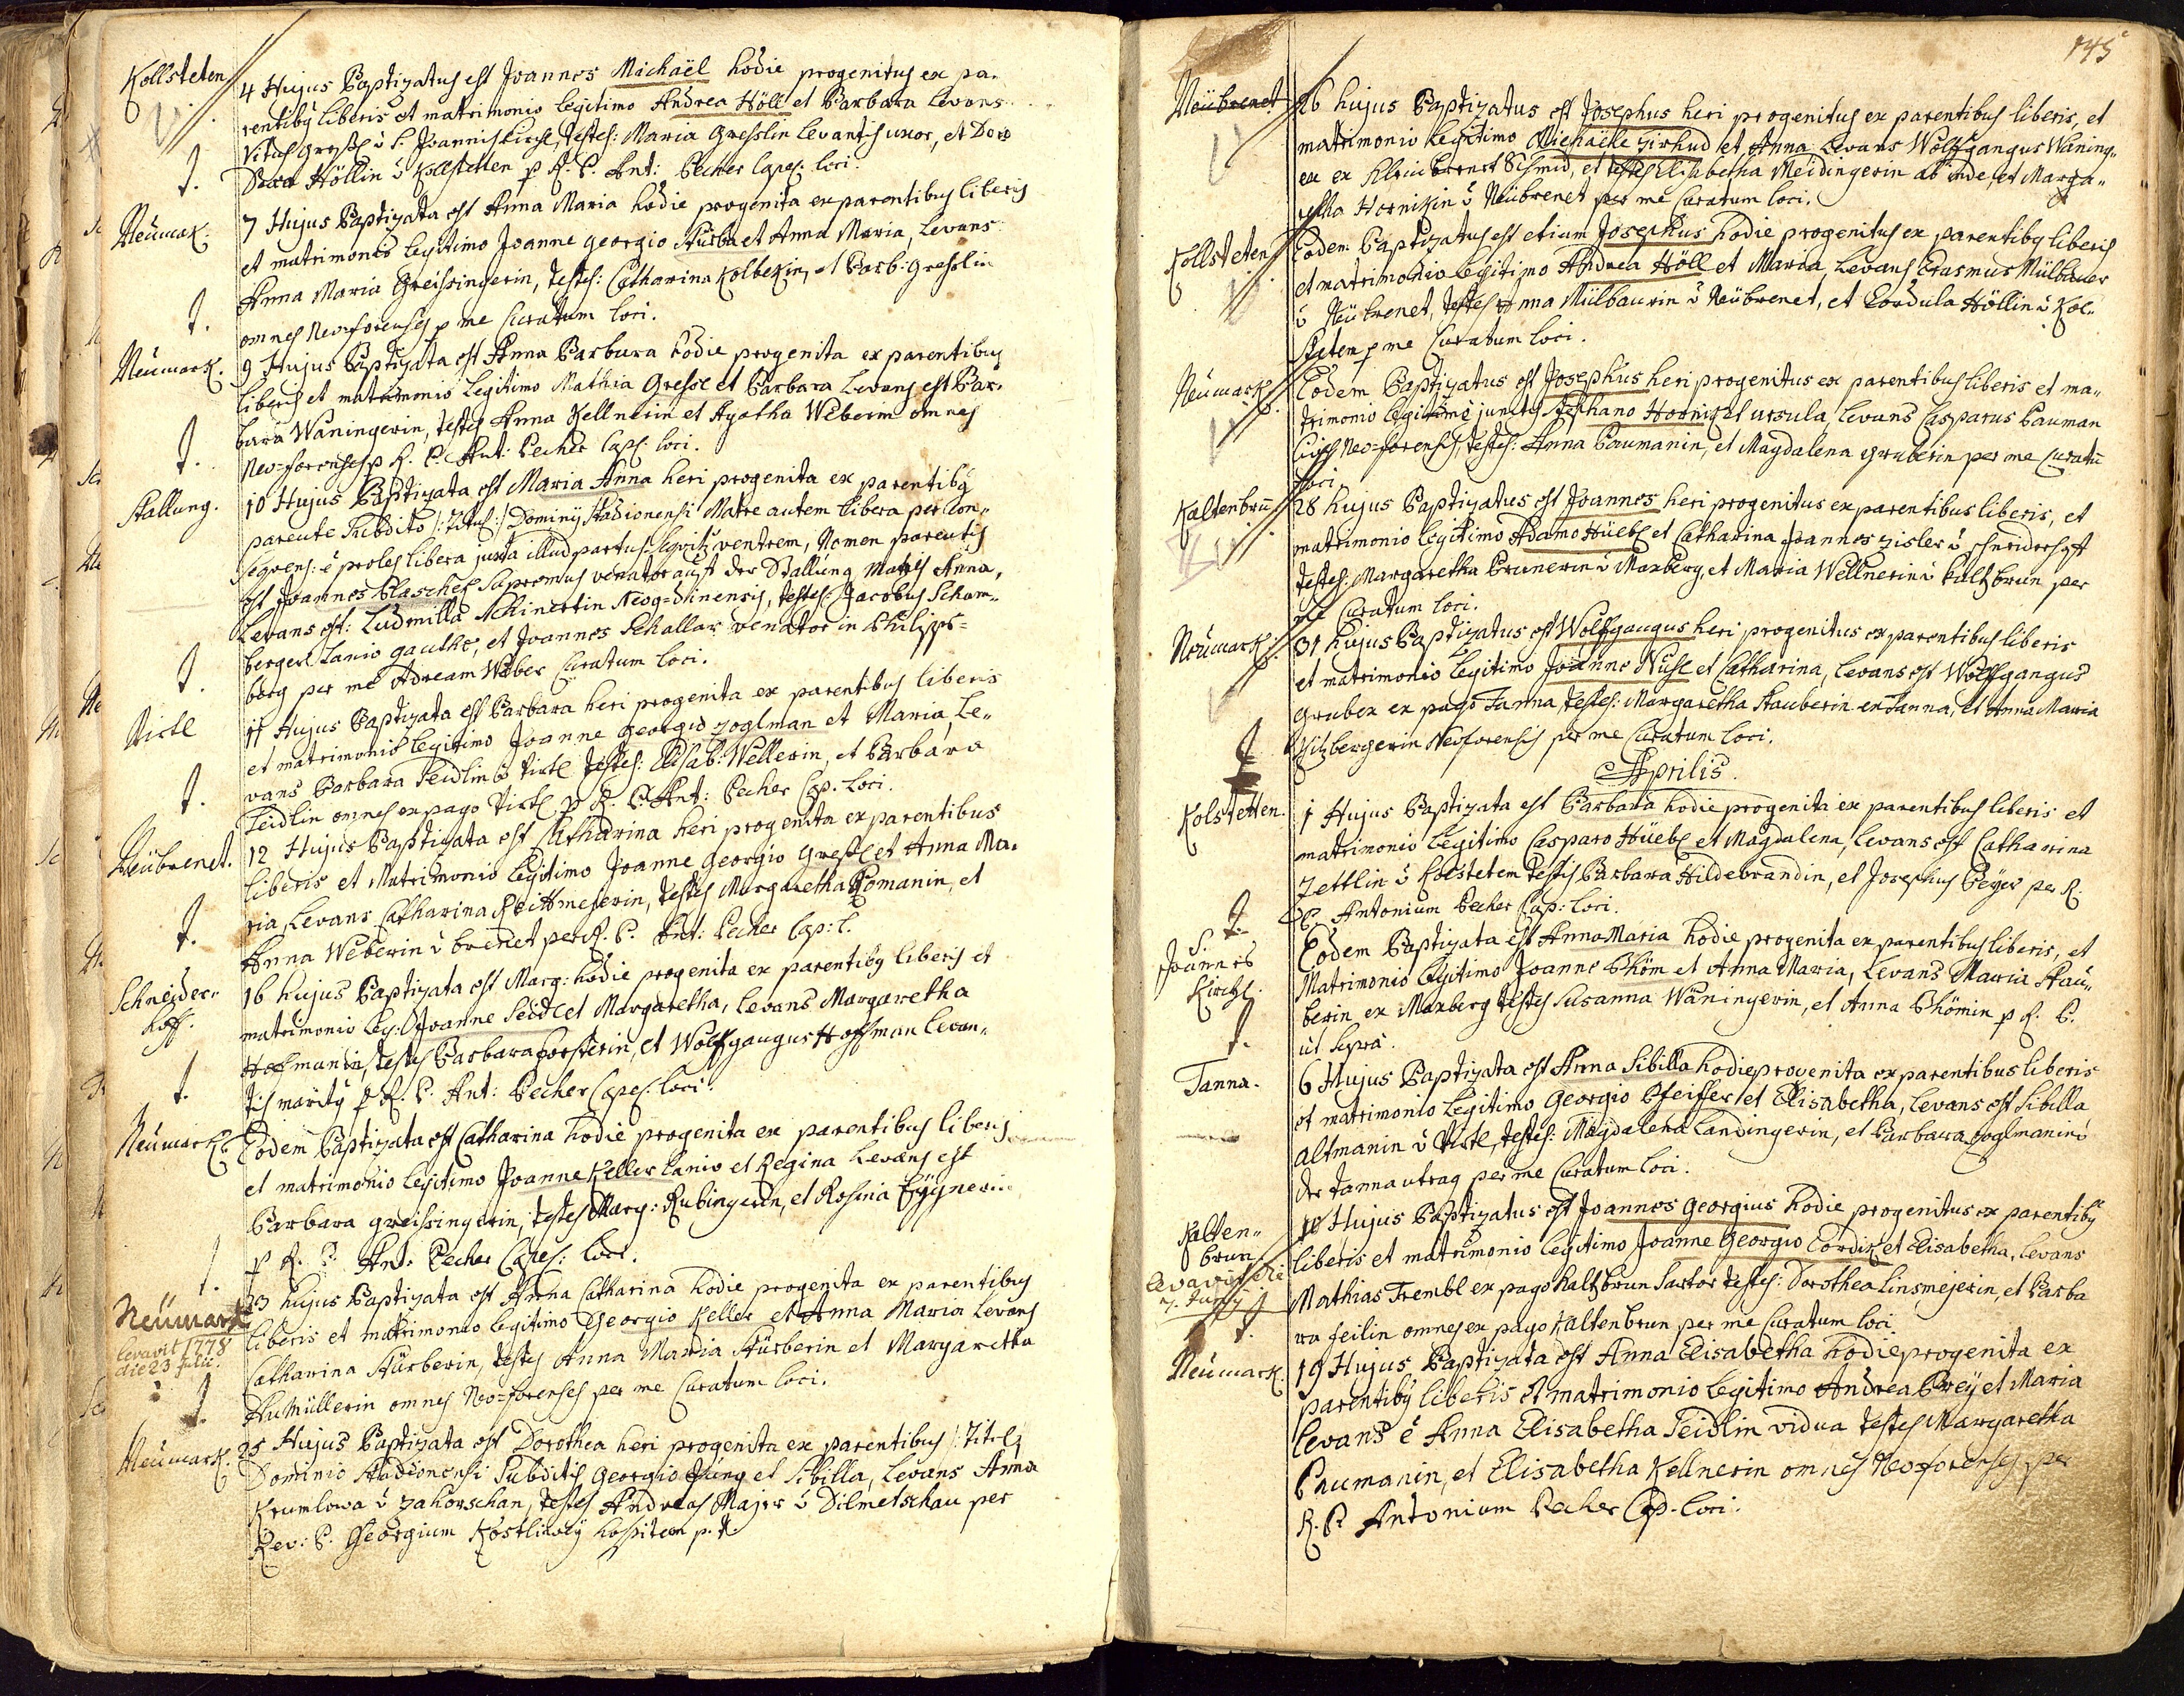 Kollsteten
4 Hujus Baptizatus est Joannes Michaël hodie progenitus ex pa-
rentibus liberis et matrimonio legitimo Andrea Höll et Barbara Levans
Vitus Gressl S: Joannis Kirchl, testes: Maria Gresslin Levantis uxor, et Doro
Höllin ů Kollstetten p R. P. Ant: Pecher Capel: loci.
Neümark.
7 Hujus Baptizata est Anna Maria hodie progenita ex parentibus liberis
et matrimonio legitimo Joanne Georgio Stürba et Anna Maria, Levans
Anna Maria Greissingerin, testes: Catharina Kolbekin, et Barb: Gresslin
omnes Neo-forenses p me Curatum loci.
Neümark.
9 Hujus Baptizata est Anna Barbara hodie progenita ex parentibus
liberis et matrimonio legitimo Mathia Gressl et Barbara Levans est Bar-
bara Waningerin, testes Anna Kellnerin et Agatha Weberin omnes
Neo-forenses p R. P. Ant: Pecher Capl: loci.
Stallung.
10 Hujus Baptizata est Maria Anna heri progenita ex parentibus
parente Subdito /: Titul :/ Dominij Stadionensi Matre autem libera per con-
seqvens: ē proles libera juxta illud partus seqvitur ventrem, Nomen parentis
est Joannes Blaschek Supremus venator auff der Stallung, Matris Anna,
Levans est: Ludmilla Schinertin Neog-dinensis, testes: Jacobus Scham-
berger Lanio gauthe, et Joannes Schallar venator in Philipps-
berg per me Adream Weber Curatum loci.
Virtl
11 Hujus Baptizata est Barbara heri progenita ex parentibus liberis
et matrimonio legitimo Joanne Georgio Zoglman et Maria, Le-
vans Barbara Seidlin ů Virtl testes: Elisab: Wellerin, et Barbara
Seidlin omnes ex pago Virtl p R. P. Ant: Pecher Cap. loci.
Neübrenet.
12 Hujus Baptizata est Catharina heri progenita ex parentibus
liberis et Matrimonio legitimo Joanne Georgio Gressl et Anna Ma-
ria, Levans Catharina Reittmeserin, testes Margaretha Romanin, et
Anna Weberin ů brenet per R. P. Ant: Pecher Cap: l.
Schneider-
hoff.
16 hujus Baptizata est Marg: hodie progenita ex parentibus liberis et
matrimonio leg: Joanne Seidl et Margaretha, Levans Margaretha
Hofmanin, testes Barbara Forsterin, et Wolfgangus Hoffman levan-
tis maritus p R. P. Ant: Pecher Capel: loci.
Neümark.
Eodem Baptizata est Catharina hodie progenita ex parentibus liberis
et matrimonio legitimo Joanne Keller Lanio et Regina Levans est
Barbara Greissingerin, testes Marg: Rubingerin, et Rosina
p R. P. Ant: Pecher Capel: loci.
Neümark
levavit 1778
die 23 Julii.
23 hujus Baptizata est Anna Catharina hodie progenita ex parentibus
liberis et matrimonio legitimo Georgio Keller et Anna Maria Levans
Catharina Stürberin, testes Anna Maria Stürberin et Margaretha
Aumüllerin omnes Neo-forenses per me Curatum loci.
Neumark.
25 Hujus Baptizata est Dorothea heri progenita ex parentibus /: Titel:
Dominio Stadionensi Subditis Georgio Jung et Sibilla, Levans Anna
Krumlowa ů Zahorschan, testes Andreas Majer ů Dilmetschau per
Rev: P. Georgium Kostliwÿ hospitem p. t.
145
Neübrenet
26 hujus Baptizatus est Josephus heri progenitus ex parentibus liberis, et
matrimonio legitimo Michaële Zirhud et Anna Levans Wolffgangus Waning-
er ex Klein brenet Schmid, et testes Elisabetha Meidingerin ab inde, et Marga-
retha Hornikin ů Neübrenet per me Curatum loci.
Kollsteten
Eodem Baptizatus est etium Josephus hodie progenitus ex parentibus liberis
et matrimonio legitimo Andrea Höll et Maria, Levans Erasmus Mülbauer
ů Neübrenet, testes Anna Mülbaurin ů Neübrenet, et Cordula Höllin ů Kol-
steten p me Curatum loci.
Neümark
Eodem Baptizatus est Josephus heri progenitus ex parentibus liberis et ma-
trimonio legitime junctis Stephano Hornik et Ursula, Levans Casparus Bauman
Civis Neo-forensis, testes: Anna Baumanin, et Magdalena Gruberin per me Curatū
loci.
Kaltenbrū
28 hujus Baptizatus est Joannes heri progenitus ex parentibus liberis, et
matrimonio legitimo Adamo Hüebl et Catharina Joannes Zisler ů Schneiderhoff
testes: Margaretha Brunerin ů Maxberg, et Maria Wellnerin ů kaltzbrun per
me Curatum loci.
Neümark.
31 hujus Baptizatus est Wolffgangus heri progenitus ex parentibus liberis
et matrimonio legitimo Joanne Nusl et Catharina, Levans est Wolffgangus
Gruber ex pago Tanna, testes: Margaretha Stauberin ex Tanna, et Anna Maria
Hitzbergerin Neoforensis per me Curatum loci.
Aprilis.
Kolstetten.
1 Hujus Baptizata est Barbara hodie progenita ex parentibus liberis et
matrimonio legitimo Casparo Hüebl et Magdalena, Levans est Catharina
Zettlin ů Kolstetem testes Barbara Hildebrandin, et Josephus Beÿer per R.
P. Antonium Pecher Cap: loci.
S.
Joannes
Kirchl.
Eodem Baptizata est Anna Maria hodie progenita ex parentibus liberis, et
Matrimonio legitimo Joanne Bhöm et Anna Maria, Levans Maria Stau-
berin ex Maxberg testes Susanna Wäningerin, et Anna Bhömin p R. P.
ut supra.
Tanna.
6 Hujus Baptizata est Anna Sibilla hodie provenita ex parentibus liberis
et matrimonio legitimo Georgio Pfeiffer et Elisabetha, Levans est Sibilla
Altmanin ů Virtl, testes: Magdalena Landingerin, et Barbara Zoglmanin ů
der tanna utraq per me Curatum loci.
Kalten-
brun
Levavit die
7. Junÿ
10 Hujus Baptizatus est Joannes Georgius hodie progenitus ex parentibus
liberis et matrimonio legitimo Joanne Georgio Cordik et Elisabetha, Levans
Mathias Trembl ex pago Kaltzbrun Sartor testes: Dorothea Linsmejerin, et Barba
ra Feilin omnes ex pago Kaltenbrun per me Curatum loci
Neümark.
19 Hujus Baptizata est Anna Elisabetha hodie progenita ex
parentibus liberis et matrimonio legitimo Andrea Breÿ et Maria
Levans ē Anna Elisabetha Seidlin vidua testes Margaretha
Paumanin, et Elisabetha Kellnerin omnes Neo-forenses per
R. P. Antonium Pecher Cap. loci.